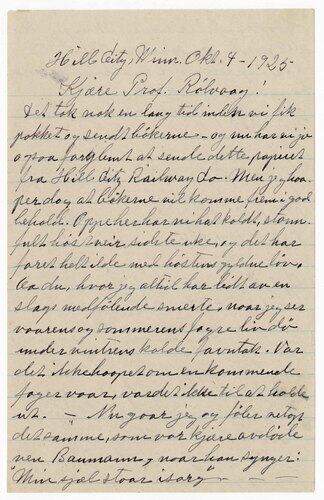 Hill City, Minn. Okt. 4 - 1925
Kjære Prof. Rölvaag!
Det tok nok en lang tid inden vi fik
pakket og sendt bökerne - og nu har vi jo
ogsaa forglemt at sende dette papiret
fra Hill City Railway Co. Men jeg haa-
per dog at bökerne vil komme frem i god
behold. Oppe her har vi hat koldt, storm-
fult höstveir sidste uke, og det har
faret helt ilde med höstens gyldne löv.
Aa du, hvor jeg altid har lidt av en
slags medfölende smerte, naar jeg ser
vaarens og sommerens fagre liv dö
under vintrens kolde favntak. Var
det ikke haapet om en kommende
fager vaar, var det ikke til at holde
ut. — Nu gaar jeg og föler netop
det samme, som vor kjære avdöde
ven Baumann, naar han synger:
"Min sjæl staar i sorg" — —